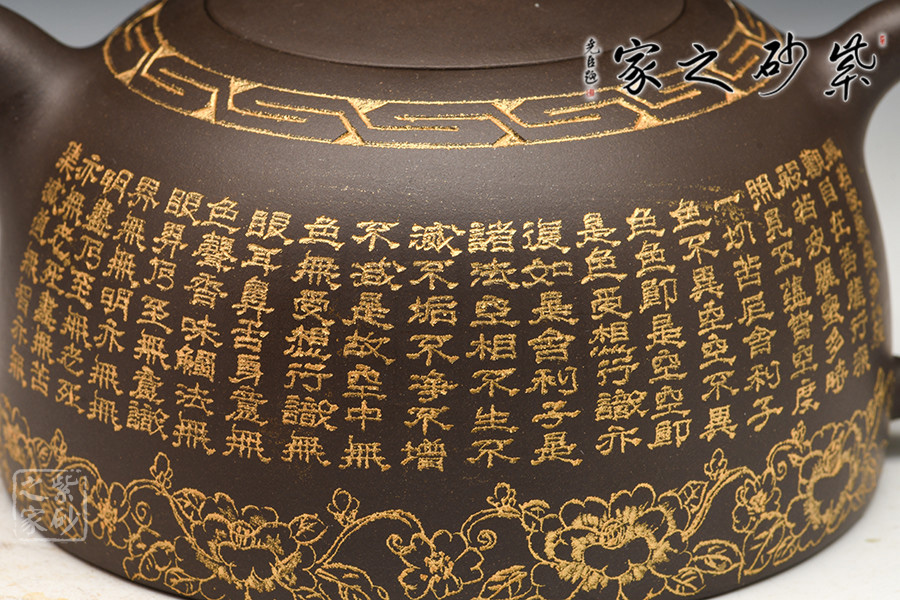 紫砂之家
觀自在菩薩行深
般若波羅蜜多時
照見五蘊皆空度
一切苦厄舍利子
色不異空空不異
色色即是空空即
是色受想行識亦
復如是舍利子是
諸法空相不生不
滅不垢不淨不增
不減是故空中無
色無受想行識無
眼耳鼻舌身意無
色聲香味觸法無
眼界乃至無意識
界無無明亦無無
明盡乃至無老死
亦無老死盡無苦
集滅道無智亦無
紫砂之家